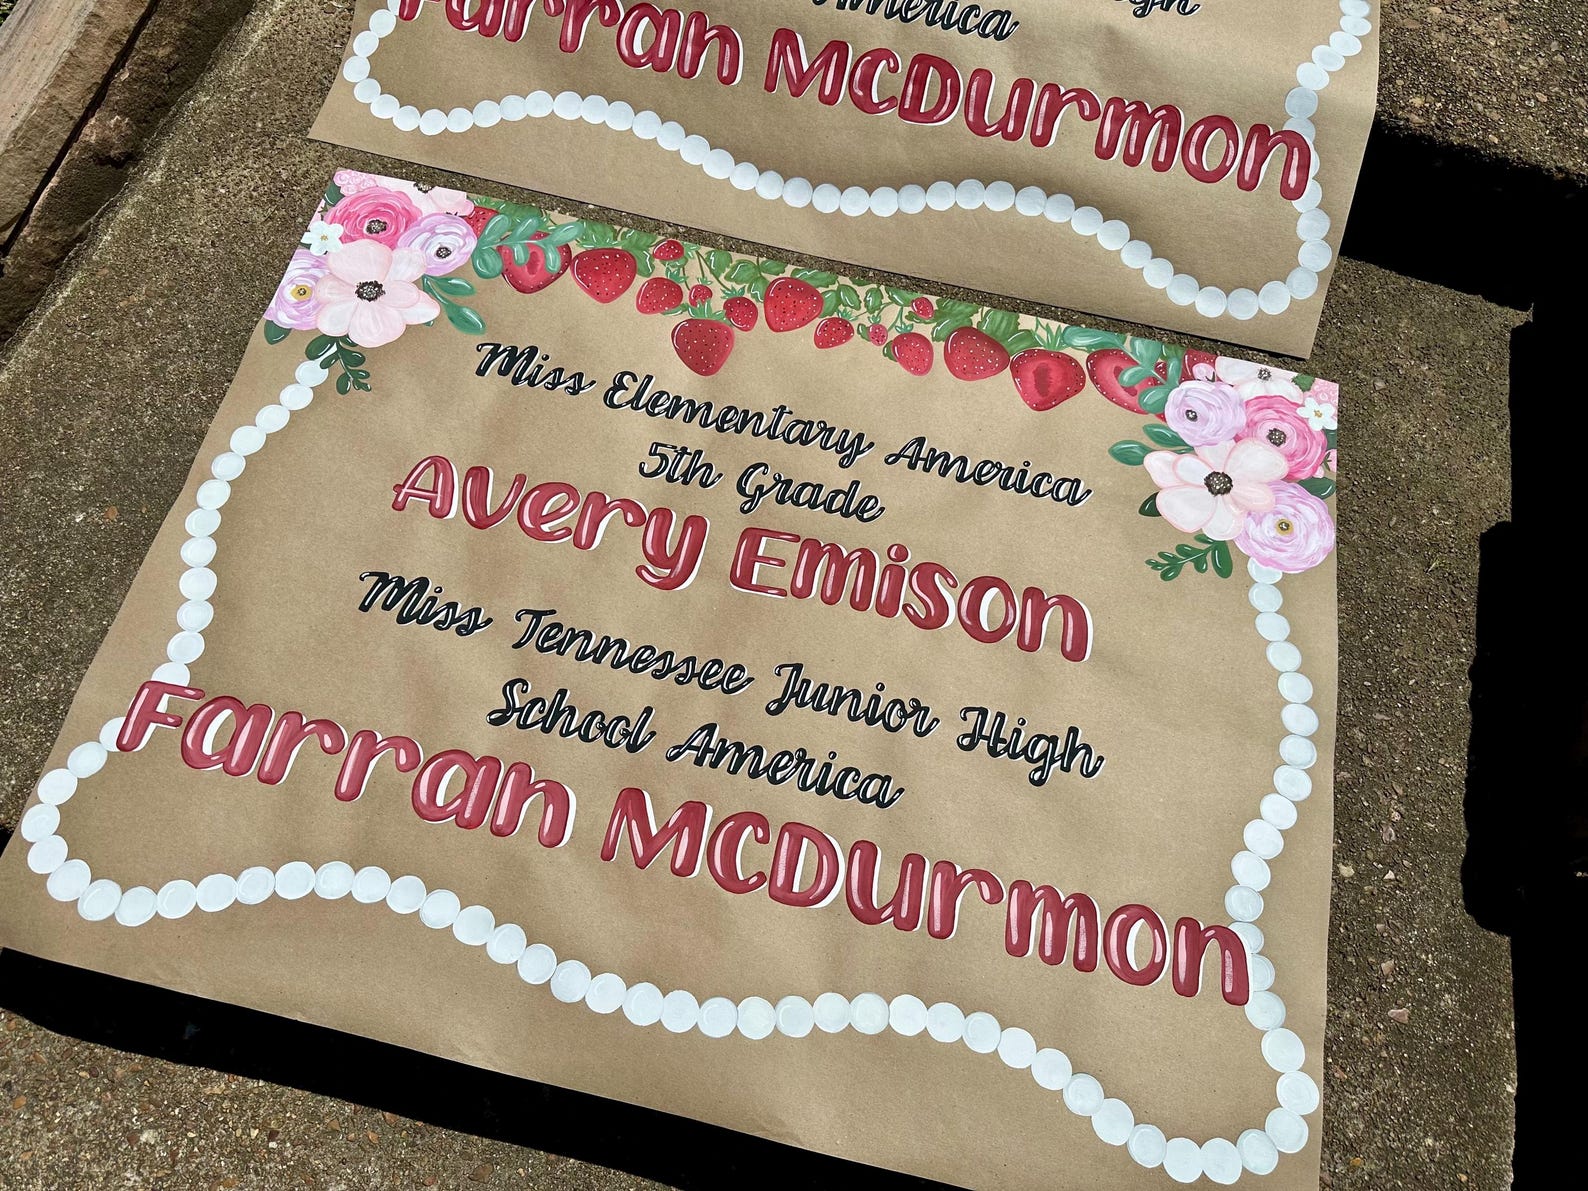 igh
America
Farran McDurmon
Miss Elementary America
5th Grade
Avery Emison
Miss Tennessee Junior High
School America
Farran McDurmon